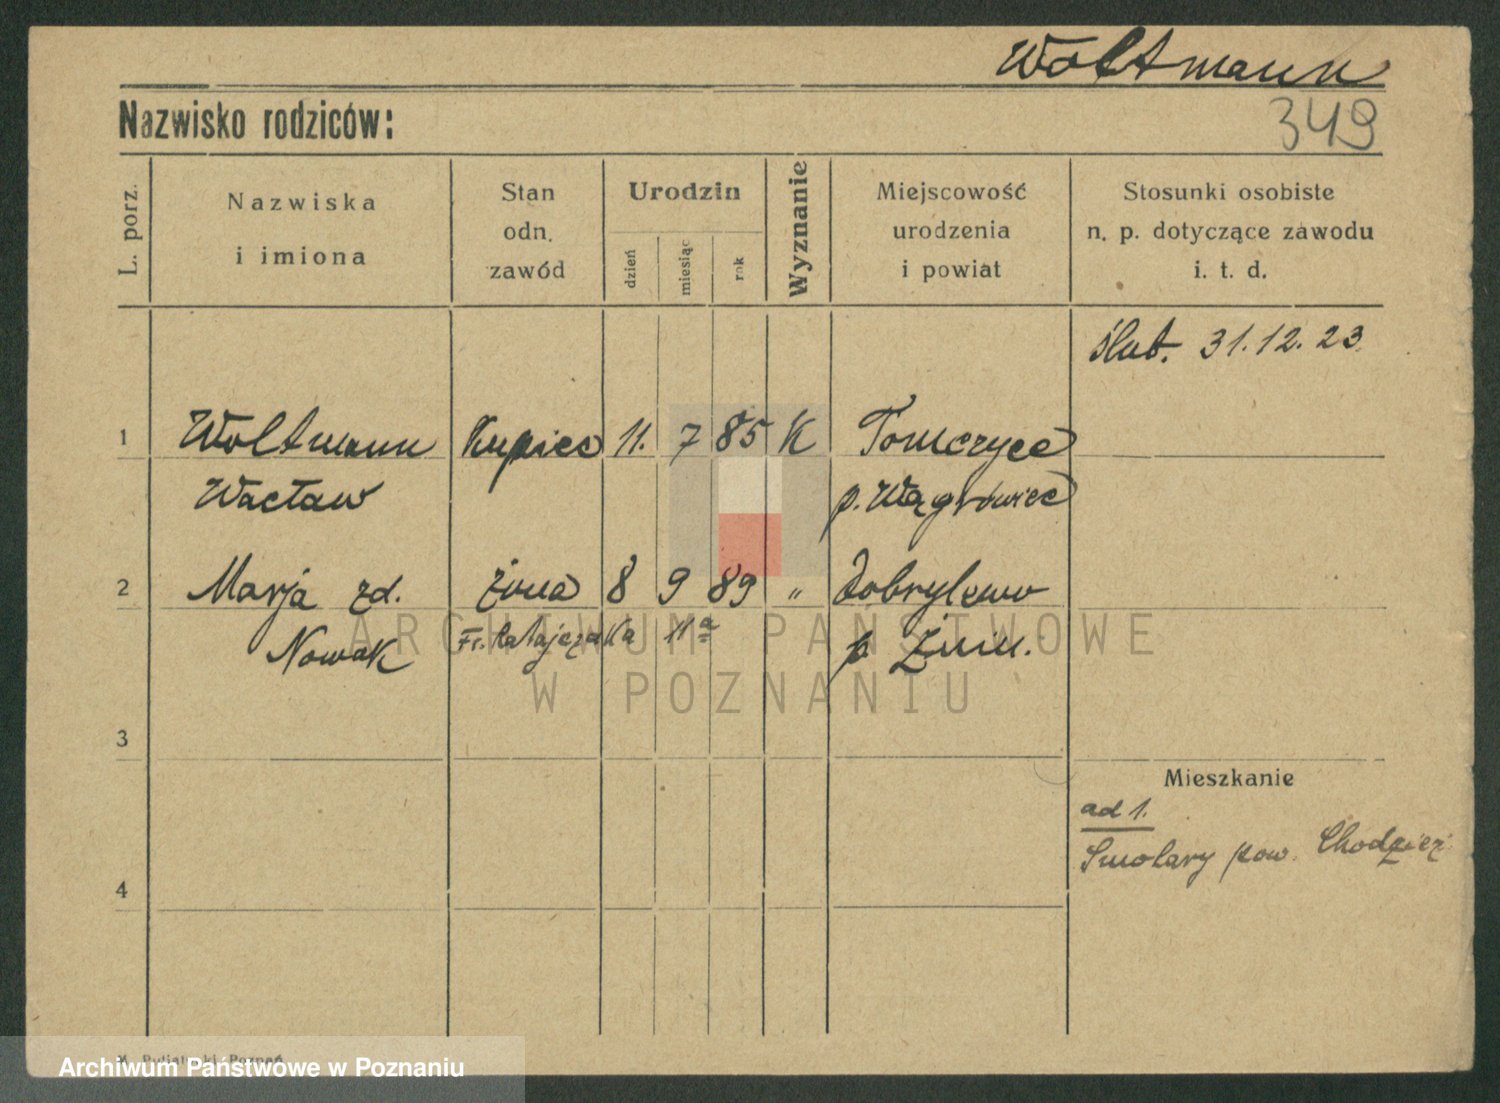 Woltmann
Nazwisko rodziców:
349
L. porz.
Nazwiska
i imiona
Stan
odn.
zawód
Urodzin
dzień
miesiąc
rok
Wyznanie
Miejscowość
urodzenia
i powiat
Stosunki osobiste
n. p. dotyczące zawodu
i. t. d.
ślub. 31.12.23
1 Woltmann Kupiec 11. 7 85 K Tomczyce
Wacław p. Wągrowiec
2 Marja zd. żona 8 9 89 „ Dobrylewo
Nowak Fr. Ratajczaka 11a p Żnin.
ARCHIWUM PAŃSTWOWE
W POZNANIU
3
Mieszkanie
ad 1.
Smolary pow. Chodzież
4
Poznań
Archiwum Państwowe w Poznaniu